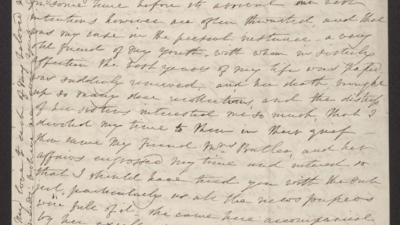 some time before its arrival. our best
intentions however are often thwarted, and that
was my case in the present instance, a very
old friend of my youth, with whom in sisterly
affection the best years of my life was passed
was suddenly removed, and her death brought
up so many dear recollections, and the distress
of her sisters interested me so much, that I
devoted my time to them in their grief
then came my friend Mrs Butler, and her
affairs engrossed my time and interest so
that I should have tired you with the sub
ject, particularly as all the news papers
were full of it. She came here accompanied
by her
My love to each of my beloved